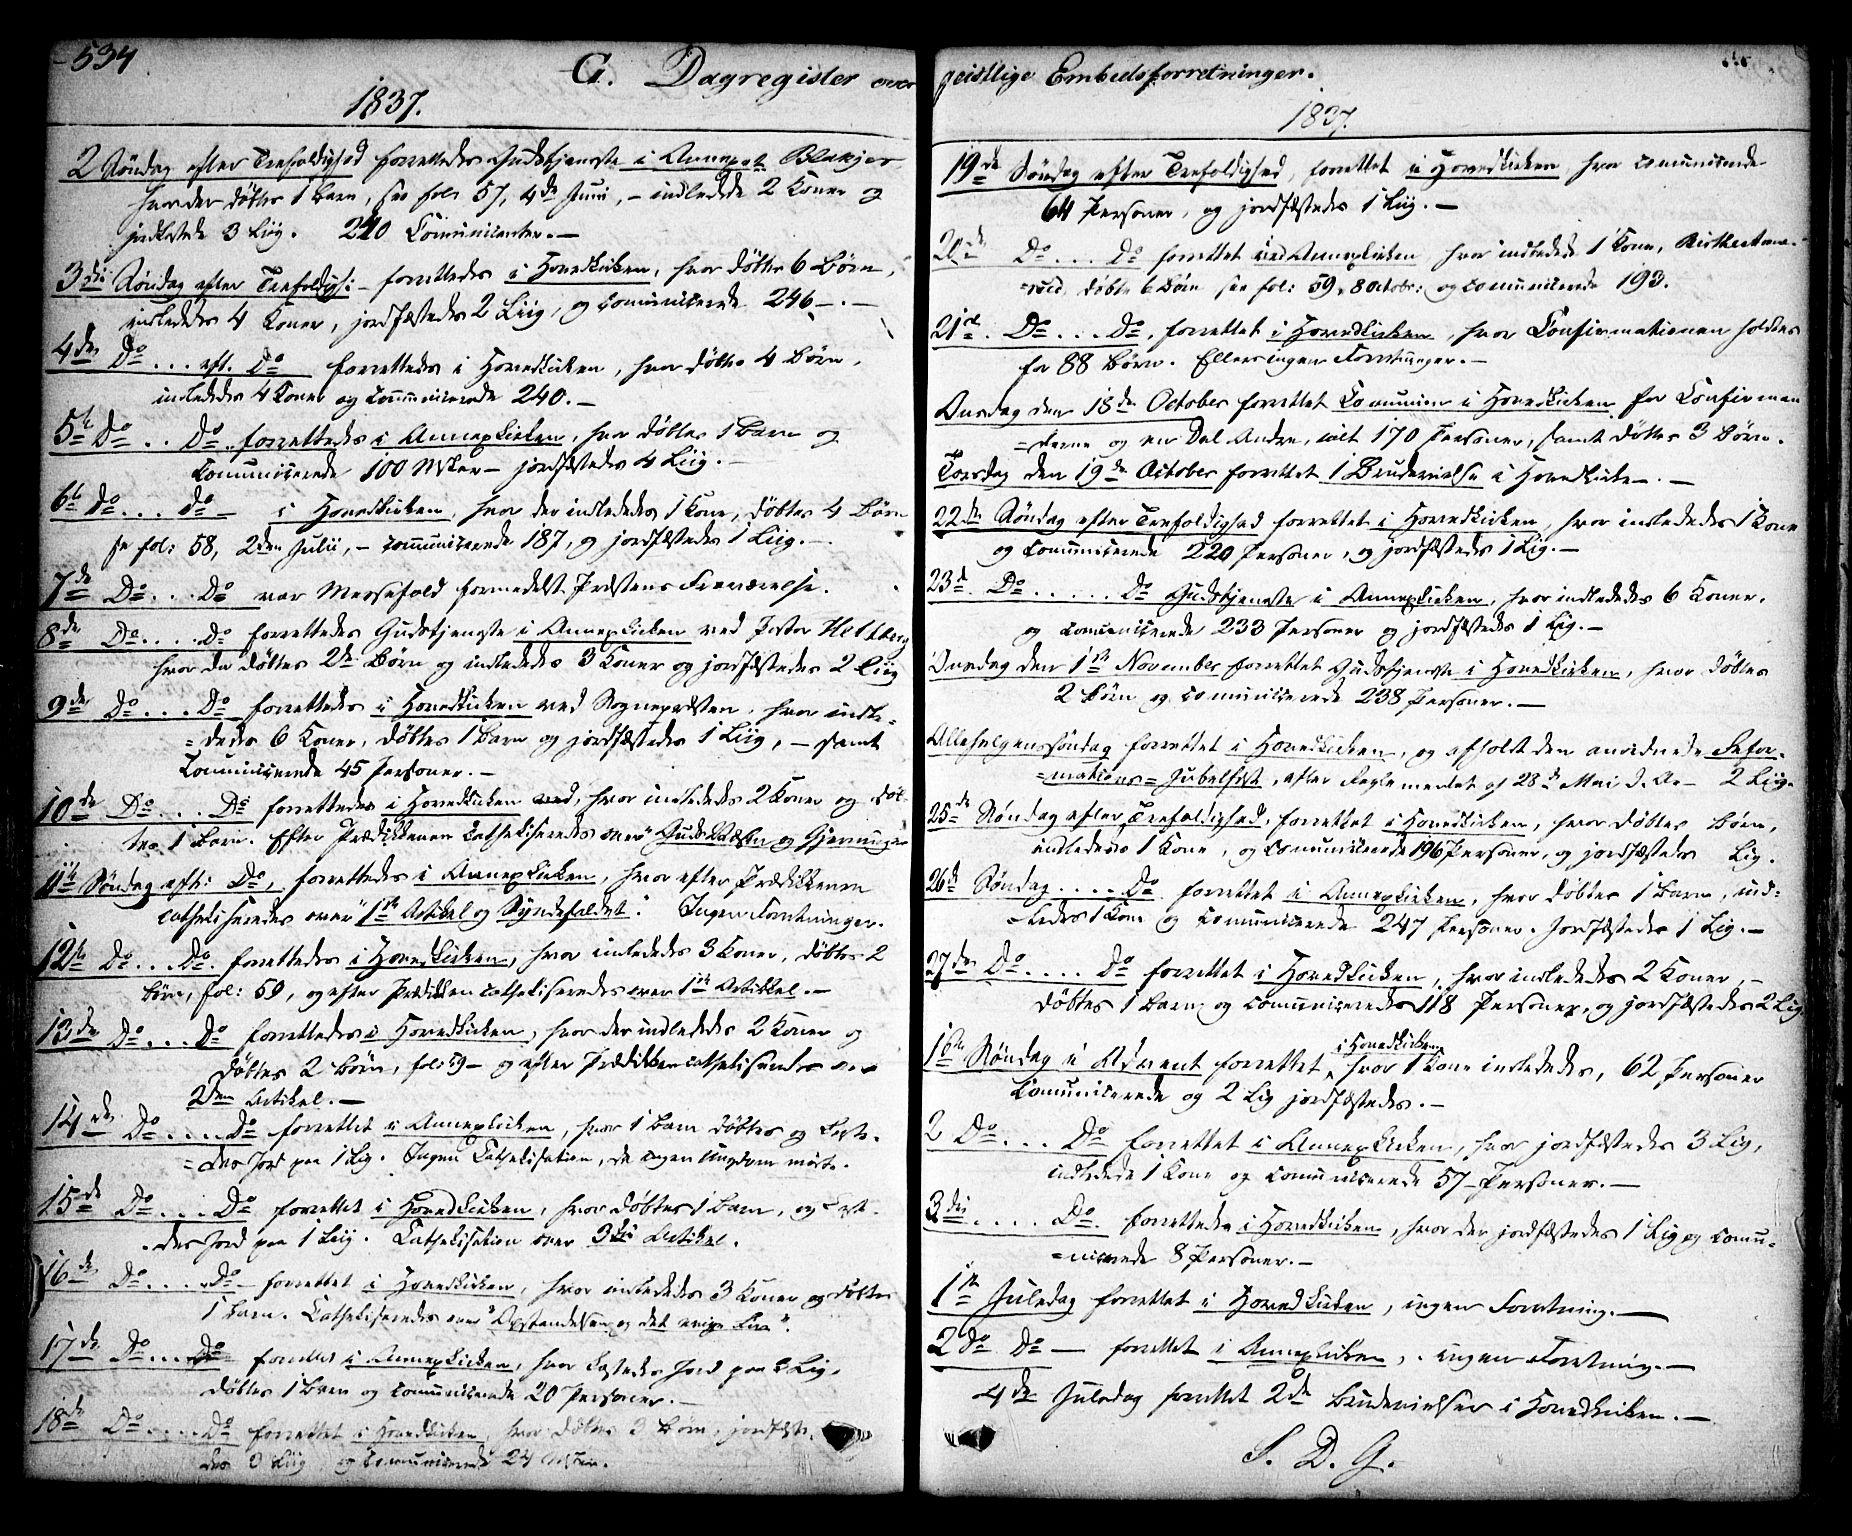 534
G. Dagregister over
1837.
2 Søndag efter Trefoldighed forrettedes Gudstjeneste i Annexet Blakjer
hvorder døbtes 1 Barn, see fol: 57, 4de Juni, - indledede 2 Koner og
jordfæstede 3 Liig. 240 Comunicenter. -
3die Søndag efter Trefoldigh: - forrettedes i Hovedkirken, hvor døbtes 6 Børn,
indledes 4 Koner, jordfæstedes 2 Liig, og Comunicerede 246 -. -
4de Do ... eft. Do forrettedes i Hovedkirken, hvor døbtes 4 Børn,
indledes 4 Koner og Communicerede 240. -
5te Do .. Do. forrettedes i Annexkirken, hvor døbtes 1 Barn og
Communicerede 100 Msker - jordfæstedes 4 Liig. -
6te Do ... Do - i Hovedkirken, hvor der indledes 1 Kone, døbtes 4 Børn
se fol: 58, 2den Julii, - Communicerede 187, og jordfæstedes 1 Liig. -
7de Do ... Do var Messefald formedelst Præstens Fraværelse.
8de Do .... Do forrettedes Gudstjeneste i Annexkirken ved Pastor Heltberg
hvor da døbtes 2de Børn og indledes 3 Koner og jordfæstedes 2 Liig
9de Do ... Do forrettedes i Hovedkirken ved Sognepræsten, hvor indle=
=dedes 6 Koner, døbtes 1 Barn og jordfæstedes 1 Liig, - samt
Communicerede 45 Personer. -
10de Do ... Do forrettedes i Hovedkirken ved, hvor indledes 2 Koner og døb-
tes 1 Barn. Efter Prædikkenen Catheliseredes over "Guds Væsen og Gjerninger
11te Søndag eft: Do, forrettedes i Annexkirken, hvor efter Prædikkenen
catheliseredes over "1ste Artikel og Syndefaldet". Ingen Forretninger.
12te Do ... Do. forrettedes i Hovedkirken, hvor indledes 3 Koner, døbtes 2
Børn, fol: 59, og efter Prædikken catheliseredes over 1ste Artikkel. -
13de Do ... Do forrettedes i Hovedkirken, hvor der indledes 2 Koner og
døbtes 2 Børn, fol: 59 - og efter Prædikken catheliseredes over
2den Artikel. -
14de Do .... Do forrettet i Annexkirken, hvor 1 Barn døbtes og kaste-
=des Jord paa 1 Lig. Ingen Cathelisation, da ingen Ungdom mødte.
15de Do ... Do forrettet i Hovedkirken, hvor døbtes 1 Barn, og kast-
des Jord paa 1 Liig. Cathelisation over 3die Artikel.
16de Do .... Do - forrettet i Hovedkirken, hvor indledes 3 Koner og døbtes
1 Barn. Catheliseredes over "Opstandelsen og det evige Liv".
17de Do ... Do forrettet i Annexkirken, hvor kastedes Jord paa Lig,
døbtes 1 Barn og Communicerede 20 Personer. -
18de Do .... Do forrettet i Hovedkirken, hvor døbtes 3 Børn, jordfæste
des Liig og Communicerede 24
geistlige Embedsforretninger.
1837.
19de Søndag efter Trefoldighed, forrettet i Hovedkirken hvor comunicerede
64 Personer, og jordfæstedes 1 Liig. -
20de Do ... Do forrettet ved Annexkirken hvor indledede 1 Kone,
døbte 6 Børn see fol: 59, 8 Octobr: og communicerede 193.
21de . Do ... Do, forrettet i Hovedkirken, hvor Confirmationen holdtes
for 88 Børn. Ellers ingen Forretninger. -
Onsdag den 18de October forrettet Comunion i Hovedkirken for Confirman
=derne og en Del Andre, ialt 170 Personer, samt døbtes 3 Børn.
Torsdag den 19de October forrettet 1 Brudevielse i Hovedkirke -. -
22de Søndag efter Trefoldighed forrettet i Hovedkirken, hvor indledes 1 Kone
og Communicerede 220 Personer, og jordfæstedes 1 Lig. -
23d. Do ..... Do Gudstjeneste i Annexkirken, hvor indledes 6 Koner.
og Comunicerede 233 Personer og jordfæstedes 1 Lig. -
Onsdag den 1ste November forrettet Gudstjeneste i Hovedkirken, hvor døbtes
2 Børn og communicerede 238 Personer. -
Allehelgenssøndag forrettet i Hovedkirken, og afholdt den anordnede Refor-
=mations=Jubelfest, efter Reglementet af 28de Mai d. A. - 2 Liig.
25de Søndag efter Trefoldighed, forrettet i Hovedkirken, hvor døbtes Børn,
indledes 1 Kone, og Comunicerede 196 Personer, og jordfæstedes Lig.
26de Søndag .... Do forrettet i Annexkirken, hvor døbtes 1 Barn, ind-
-ledes 1 Kone og Comunicerede 247 Personer. Jordfæstedes 1 Lig. -
27de Do .... Do forrettet i Hovedkirken, hvor indledes 2 Koner, -
døbtes 1 Barn og Comunicerede 118 Personer, og jordfæstedes 2 Lig
1ste Søndag i Advent forrettet i Hovedkirken hvor 1 Kone indledes, 62 Personer
Comunicerede og 2 Lig jordfæstedes. -
2 Do ... Do forrettet i Annexkirken, hvor jordfæstedes 3 Lig,
indledede 1 Kone og Comunicerede 57 - Personer. -
3die .... Do. forrettede i Hovedkirken, hvor der jordfæstedes 1 Lig og Comu-
=nicerede 8 Personer. -
1ste Juledag forrettet i Hovedkirken, ingen Forretning. -
2 Do Do - forrettet i Annexkirken, . ingen Forretning. -
4de Juledag forrettet 2de Brudevielser i Hovedkirken. -
S. D. G.